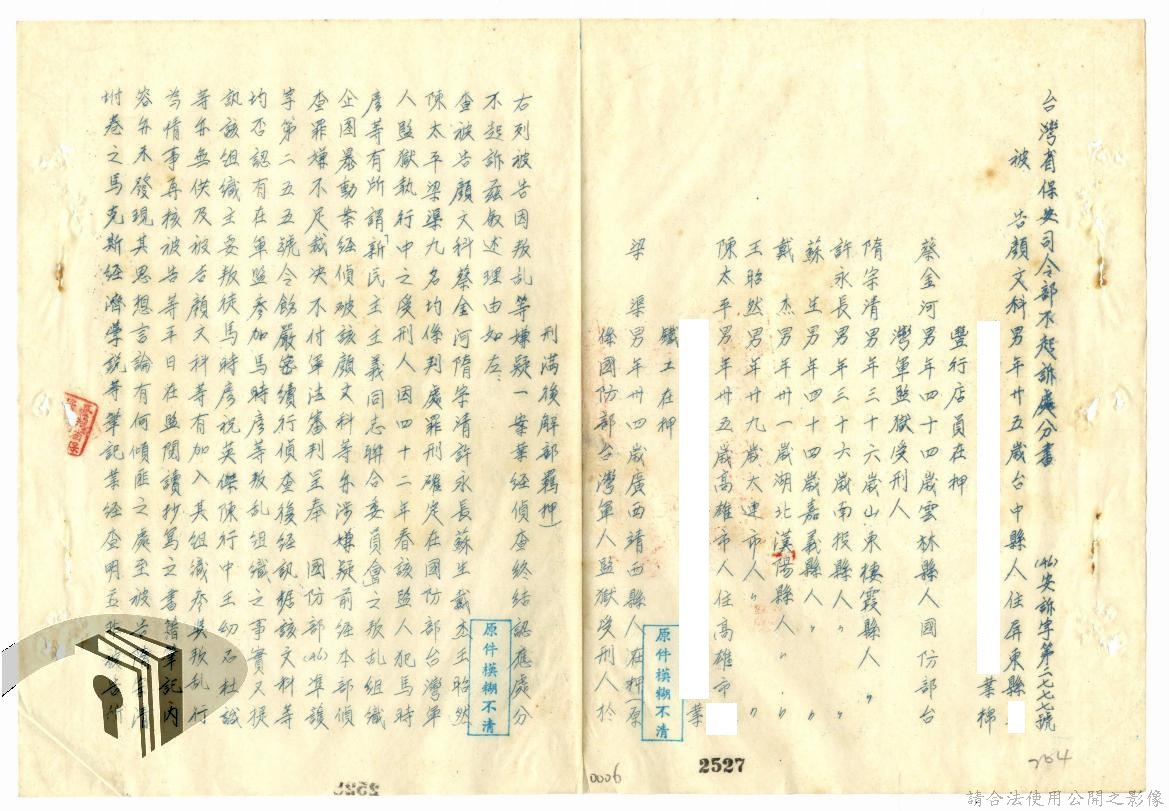 台灣省保安司令部不起訴處分書
(46)安訴字第二七七號
被告顏文科男年卅五歲台中縣人住屏東縣
業棉
豐行店員在押
蔡金河男年四十四歲雲林縣人國防部台
灣軍監獄受刑人
隋宗清男年三十六歲山東棲霞縣人〃
許永長男年三十六歲南投縣人〃〃
蘇生男年四十四歲嘉義縣人〃〃
戴杰男年卅一歲湖北漢陽縣人〃〃
王昭然男年卅九歲大連市人〃〃
陳太平男年卅五歲高雄市人住高雄市
業
鐵工在押
梁渠男年卅四歲廣西靖西縣人在押(原
係國防部台灣軍人監獄受刑人於
刑滿後解部羈押)
右列被告因叛乱等嫌疑一案業經偵查終結認應處分
不起訴茲敘述理由如左:
查被告顏文科蔡金河隋宗清許永長蘇生戴杰王昭然
陳太平梁渠九名均係判處罪刑確定在國防部台灣軍
人監獄執行中之受刑人因四十二年春該監人犯馬時
彥等有所謂「新民主主義同志聯合委員會」之叛乱組織
企圖暴動案經偵破該顏文科等亦涉嫌疑前經本部偵
查罪嫌不足裁決不付軍法審判呈奉 國防部(46)準議
字第二五五號令飭嚴密續行偵查後經訊據該文科等
均否認有在軍監參加馬時彥等叛乱組織之事實又提
訊該組織主委叛徒馬時彥祝英傑陳行中王幼石杜誠
等亦無供及被告顏文科等有加入其組織參與叛乱行
為情事再核被告等平日在監閱讀抄寫之書籍筆記內
容亦未發現其思想言論有何傾匪之處至被告
清
附卷之馬克斯經濟學説等筆記業經查明
原件模糊不清
原件模糊不清
2527
0006
204
請合法使用公開之影像